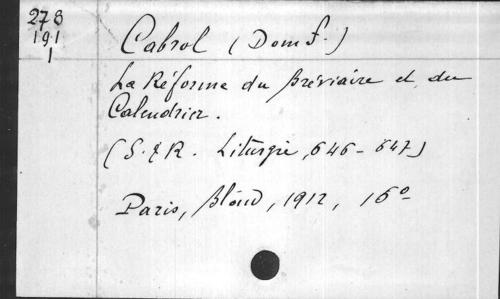 278
191
1
Cabrol (Dom f.)
La Réforme du Bréviaire et du
Calendrier.
(S. & R. Liturgie, 646-647)
Paris, Bloud, 1912, 16°